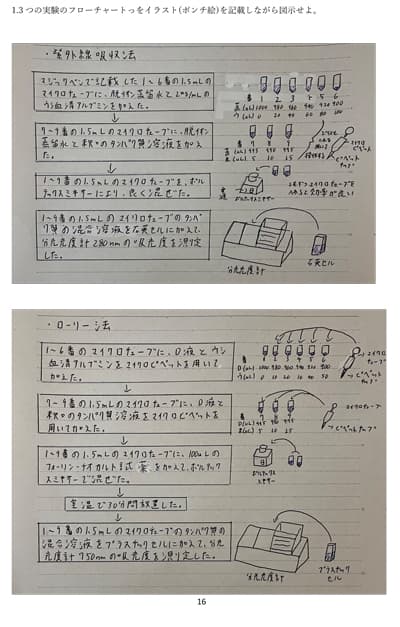 1.3 つの実験のフローチャートっをイラスト(ポンチ絵)を記載しながら図示せよ。
・紫外線吸収法
マジックペンで記載した1〜6番の1.5mLの
マイクロチューブに、脱イオン蒸留水と2mg/mLの
ウシ血清アルブミンを加えた。
7〜9番の1.5mLのマイクロチューブに、脱イオン
蒸留水と秋々のタンパク質溶液を加え
た。
1〜9番の1.5mLのマイクロチューブを、ボル
テックスミキサーにより、良く混ぜた。
1〜9番の1.5mLのマイクロチューブのタンパ
ク質の混合溶液を石英セルに加えて、
分光光度計で280nmの吸光度を測定し
た。
番 1 2 3 4 5 6
蒸(uL) 1000 980 960 940 920 900
ウ(uL) 0 20 40 60 80 100
番 7 8 9
995 990 975
5 10 25
マイクロ
ピペット
ボルテックスミキサー
分光光度計
石英セル
・ローリー法
1〜6番のマイクロチューブに、D液とウシ
血清アルブミンをマイクロピペットを用いて
加えた。
7〜9番のマイクロチューブに、D液と
秋々のタンパク質溶液をマイクロピペットを
用いて加えた。
1〜9番の1.5mLのマイクロチューブに、100uLの
フォーリン・チオカルト試薬を加えて、ボルテック
スミキサーで混ぜた。
室温で30分間放置した。
1〜9番の1.5mLのマイクロチューブのタンパク質の
混合溶液をプラスチックセルに加えて、分光
光度計で750nmの吸光度を測り定した。
番 1 2 3 4 5 6
D(uL) 1000
ウ(uL) 0 10 20 30 40 50
マイクロ
チューブ
ピペットチップ
番 7 8 9
D(uL) 995 990 975
5 10 25
マイクロチューブ
ピペットチップ
ボルテックス
ミキサー
分光光度計
プラスチック
セル
16